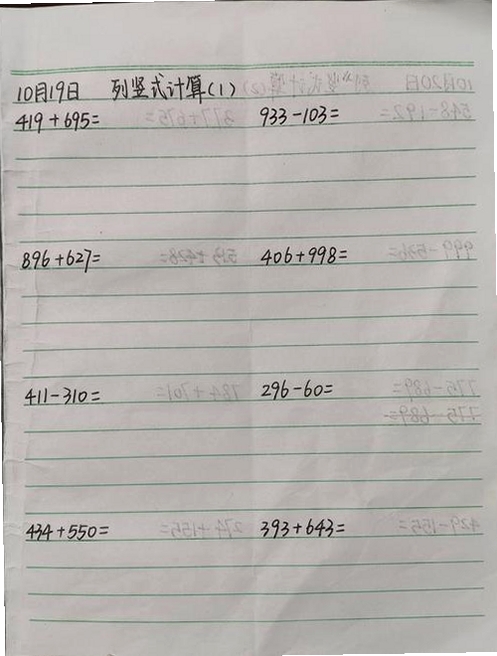 10月19日 列竖式计算(1)
419+695= 933-103=
896+627= 406+998=
411-310= 296-60=
434+550= 393+643=